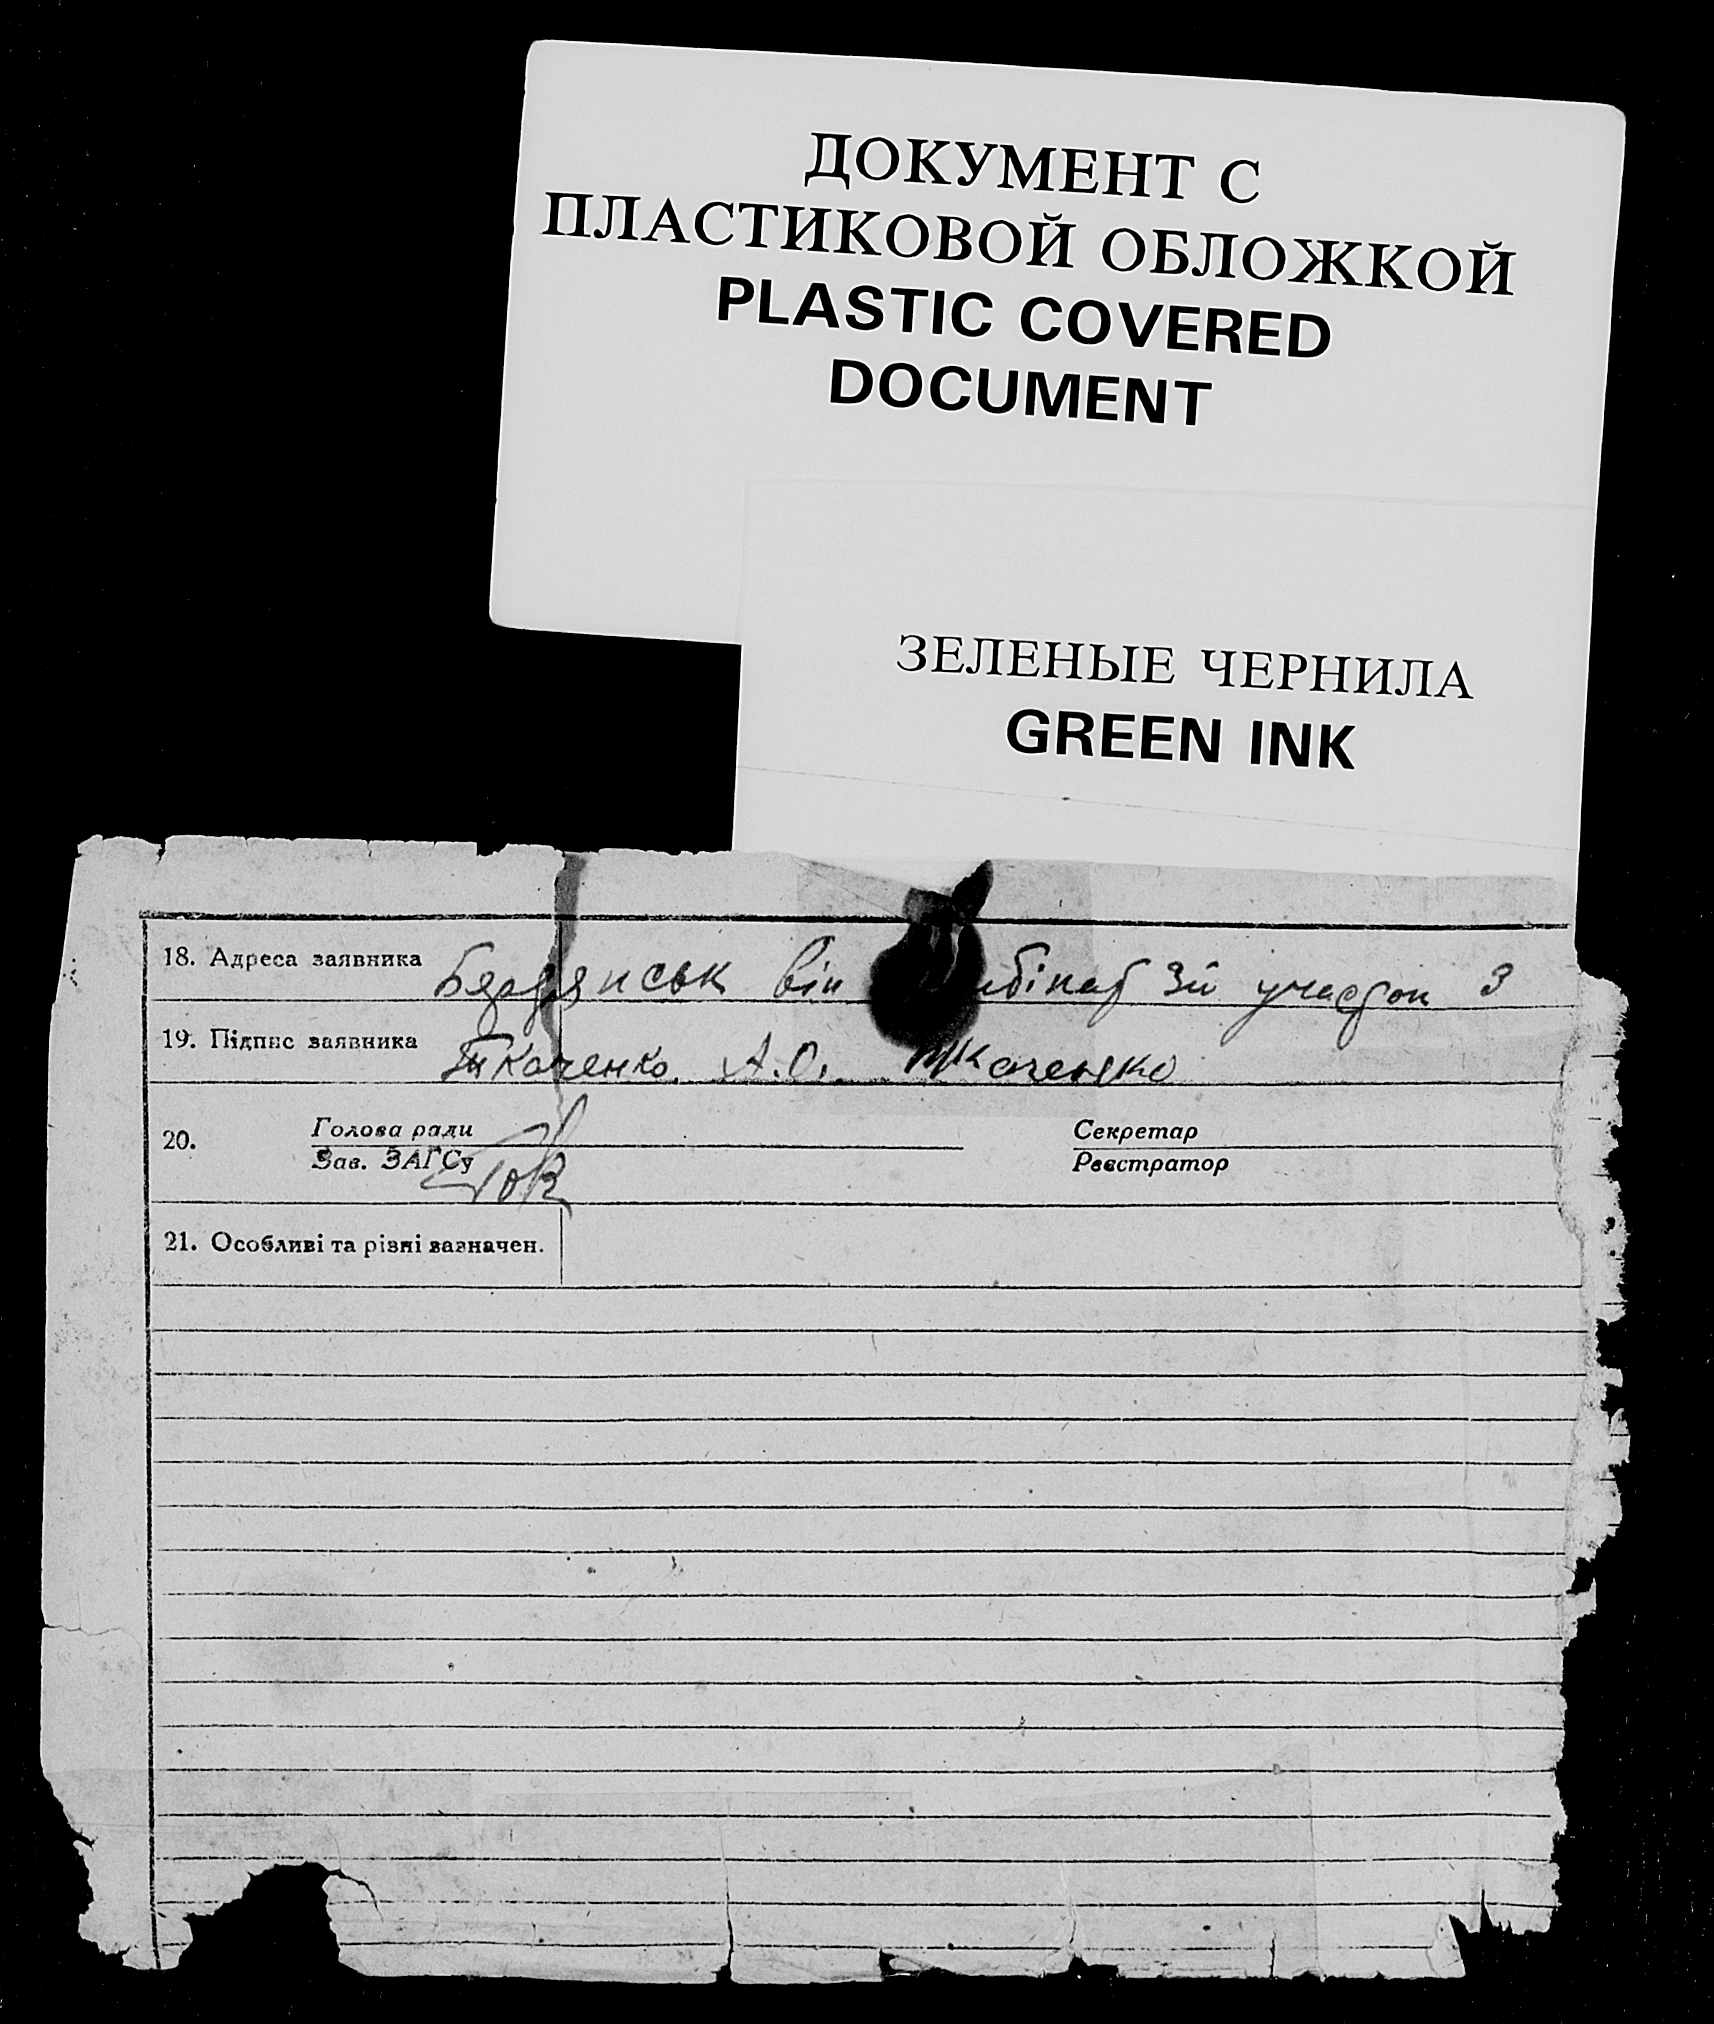 ДОКУМЕНТ С
ПЛАСТИКОВОЙ ОБЛОЖКОЙ
PLASTIC COVERED
DOCUMENT
ЗЕЛЕНЫЕ ЧЕРНИЛА
GREEN INK
18. Адреса заявника Бердянськ він бінат 3й участок 3
19. Підпис заявника Ткаченко. А.О. Ткаченко
20. Голова ради Секретар
Зав. ЗАГСу Реєстратор
21. Особливі та різні зазначен.